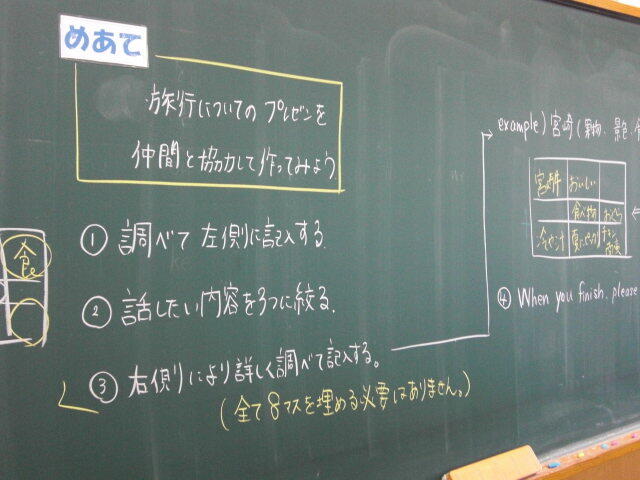 めあて
旅行についてのプレゼンを
仲間と協力して作ってみよう
① 調べて左側に記入する.
② 話したい内容を3つに絞る.
③ 右側により詳しく調べて記入する。
(全て8マスを埋める必要はありません。)
食
example) 宮崎(果物、景色、
おいしい
食べ物
④ When you finish, please